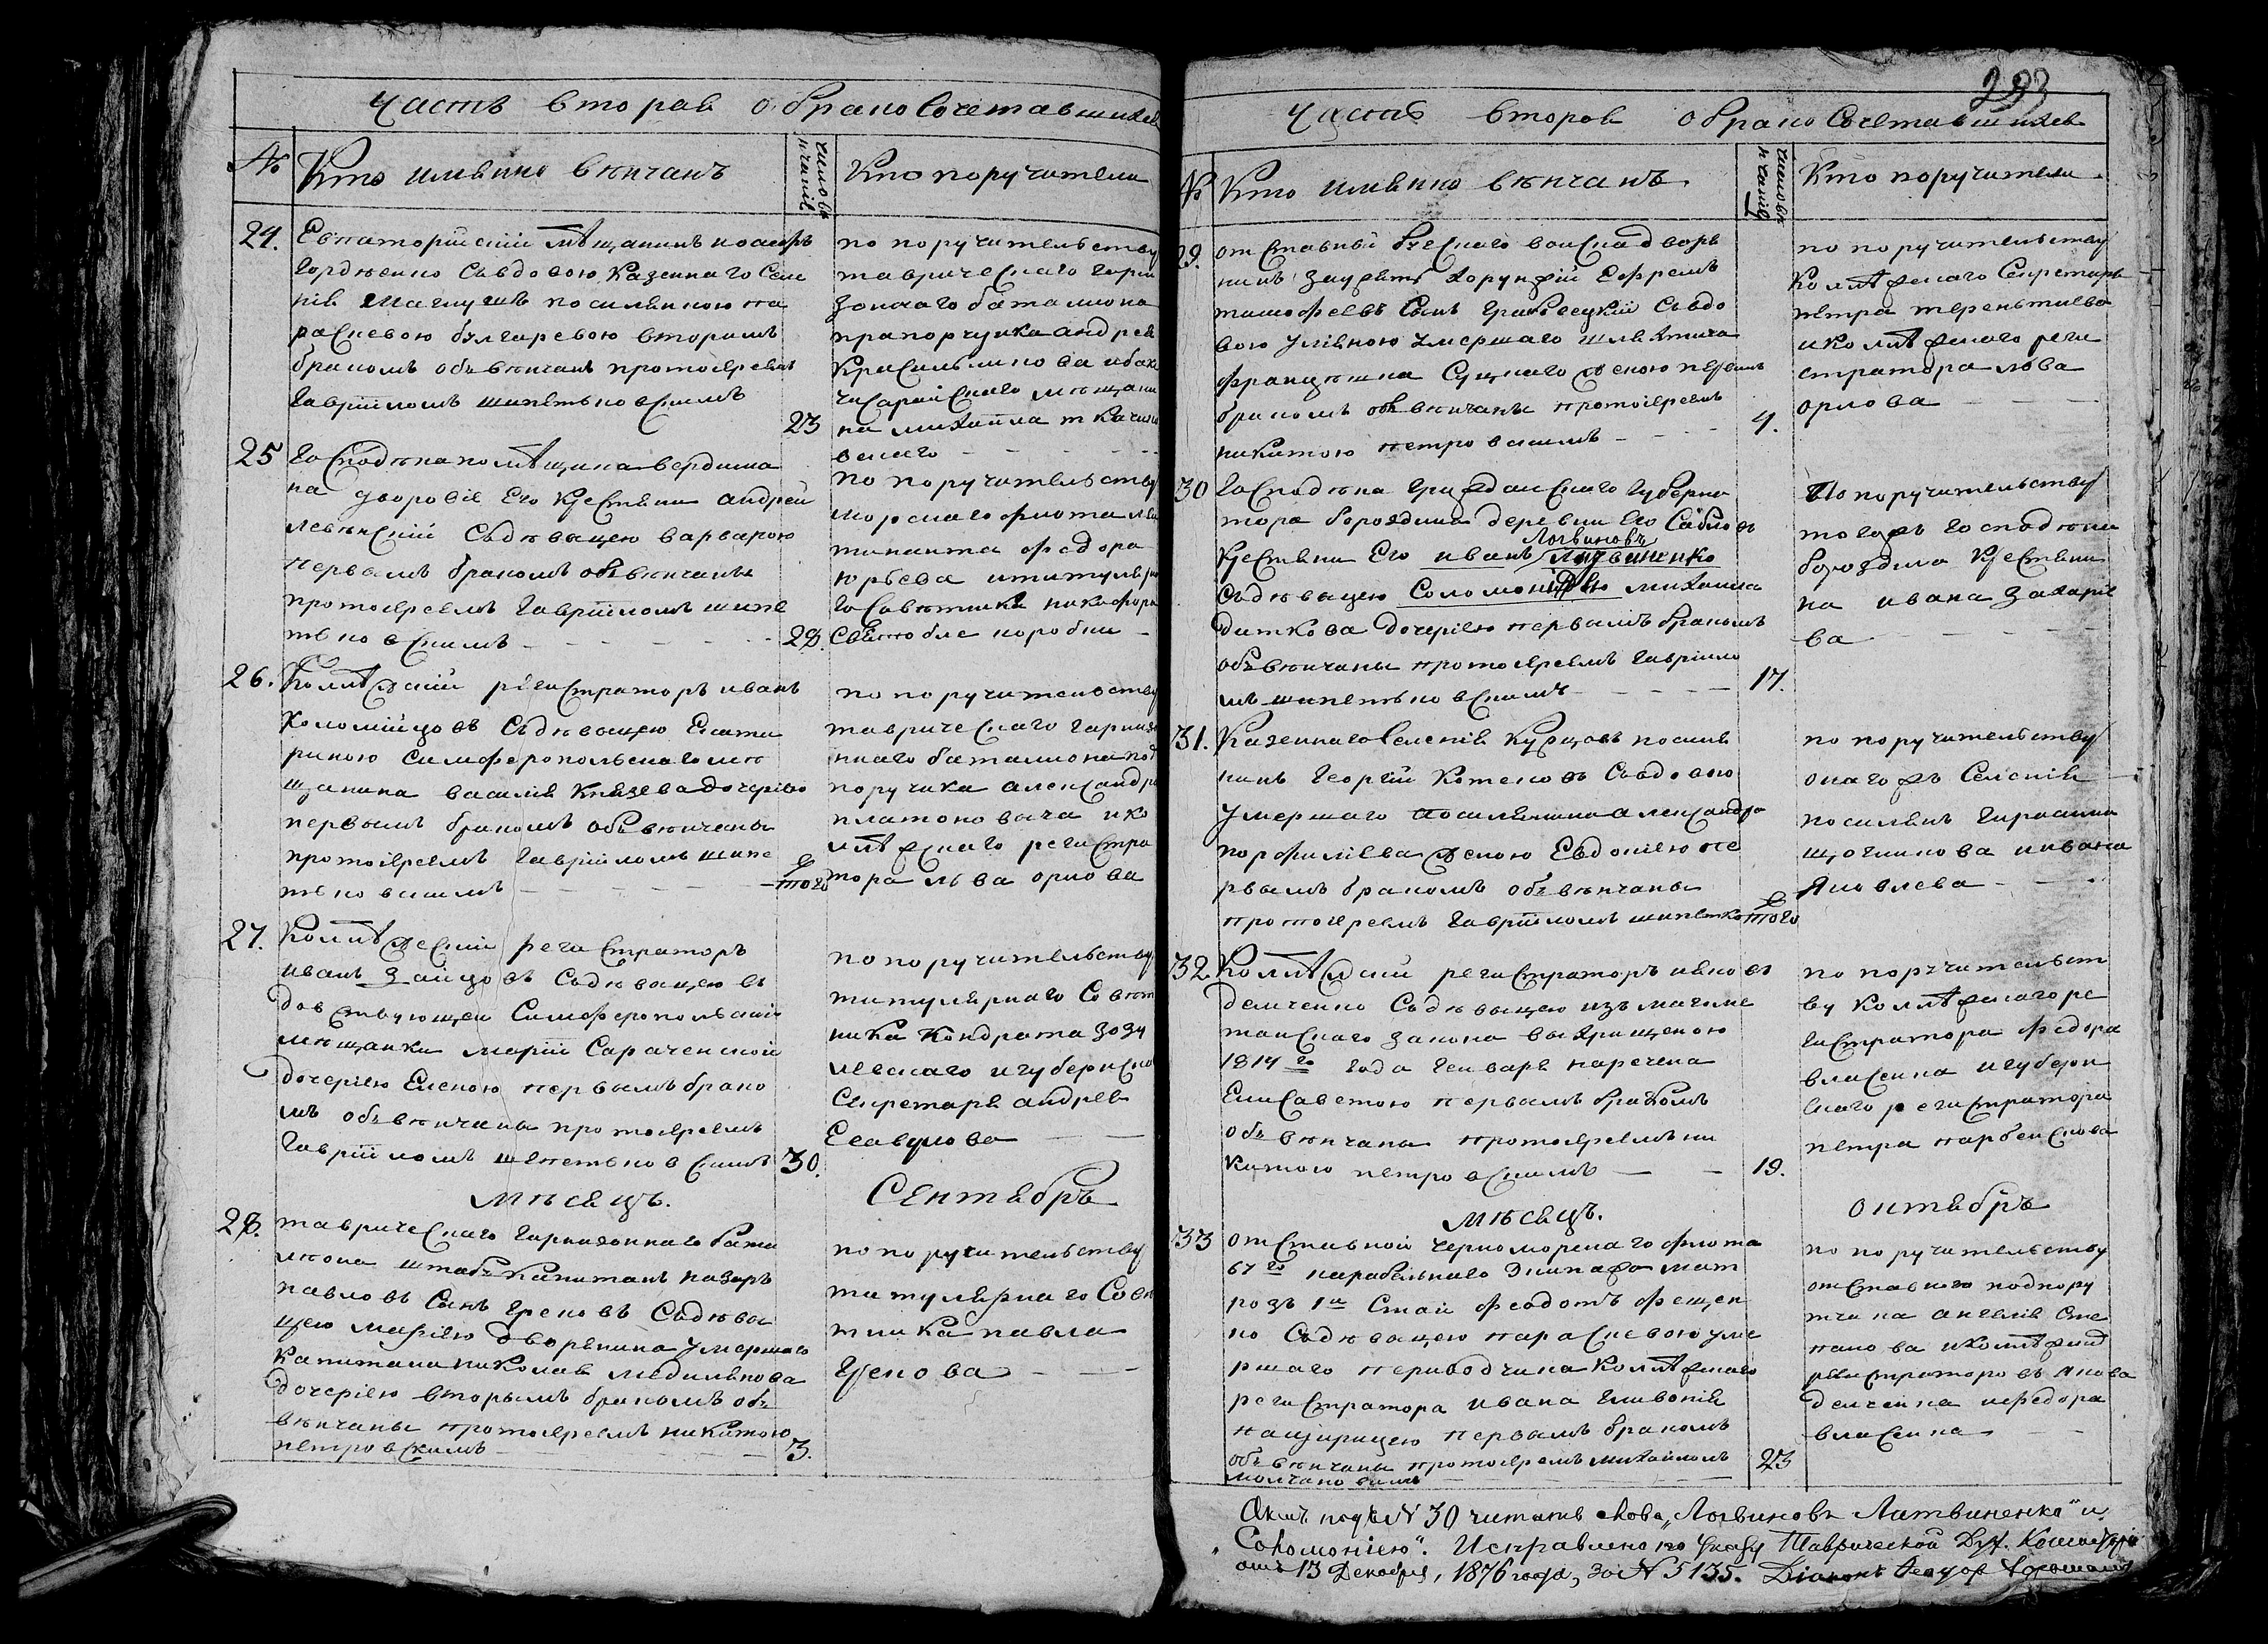 Часть вторая о бракосочетавшихся
№ Кто имянно венчанъ
число венчанія
Кто поручители
24. Евпаторійскій мѣщанинъ
Гордѣенко съвдовою Казеннаго Селе
нія поселянкою па
раскевою булгаревою вторымъ
бракомъ обвѣнчанъ протоіереемъ
Гавріиломъ шипетьковскимъ
23
по поручительству
таврическаго гарни
зоннаго баталиона
прапорщика андрея
Красильникова и бахчи
сарайскаго мѣщани
на михайла ткачин
вскаго
25 Господина помѣщика вердима
на дворовіе его крестянин андрей
левѣнскій съдѣвицею варварою
первымъ бракомъ обвѣнчаны
протоіереемъ гавріиломъ шипе
тьковскимъ
28.
по поручительству
морскаго флота лей
тинанта федора
юрьева ититуляр
госоветника никифора
26. Коллѣжскій регистраторъ иванъ
Коломійцовъ съдѣвицею Екате
риною Симферопольскаго мѣ
щанина василія Князева дочерію
первымъ бракомъ обвѣнчаны
протоіереемъ гавріиломъ шипе
тьковскимъ
того
по поручительству
таврическаго гарнизо
ннаго баталиона под
поручика александра
платоновича и ко
ллѣжскаго регистра
тора льва орлова
27. Коллѣжескій регистраторъ
иванъ Зайцовъ съдѣвицею въ
довствующей Симферопольскій
мѣщанки маріи Сараченской
дочерію Еленою первымъ брако
мъ обвѣнчаны протоіереемъ
Гавріиломъ шепетьковскимъ
30.
по поручительству
титулярнаго Совѣт
ника Кондрата зозу
левскаго игубернско
Секретаря андрея
Есаулова
мѣсяцъ. Сентябрь
28. таврическаго гарнизоннаго бата
лиона штабъ капитанъ назаръ
павловъ сынъ грековъ съдѣви
цею маріею дворянина умершаго
капитана николая медилянова
дочерію вторымъ бракомъ об
вѣнчаны протоіереемъ никитою
петровскимъ
3.
по поручительству
титулярнаго Совѣ
тника павла
Грекова
293
Часть вторая о бракосочетавшихся
№ Кто имянно вѣнчанъ.
число венчанія
Кто поручители.
29. отставный Русскаго воиска дворя
нинъ хорунжій Ефремъ
тимофеевъ сынъ съвдо
вою умершаго шляхтича
первымъ
бракомъ обвѣнчаны протоіереемъ
никитою петровскимъ
4.
по поручительству
Коллѣжскаго Секретаря
петра терентиева
и коллѣжскаго реги
стратора лва
орлова
30 Господина гражданскаго губерна
тора бороздина деревни его Саблов
крестянин его иванъ Литвиненко
Логвиновъ
съдѣвицею Соломонiею михаила
диткова дочерію первымъ бракомъ
обвѣнчаны протоіереемъ гавріило
мъ шипетьковскимъ
17.
По поручительству
тогожъ господина
бороздина крестяни
на ивана захаріе
ва
31. Казеннаго селенія Курцовъ посиля
нинъ Георгій Котеновъ съвдовою
умершаго посилянина александра
порфиліева женою Евдокіею пе
рвымъ бракомъ обвѣнчаны
протоіереемъ гавріиломъ шипетько
того
по поручительству
онагожъ селенія
посилянъ гирасима
щочникова иивана
Яковлева
32. Коллѣжскій регистраторъ ияковъ
демченко съдѣвицею изъ магоме
танскаго закона выкрищеною
1814го года генваря наречена
Елисаветою первымъ бракомъ
обвѣнчаны протоіереемъ ни
китою петровскимъ
19.
по поручительст
ву коллѣжскаго ре
гистратора федора
власенка игуберн
скаго регистратора
петра
мѣсяцъ. октябрь
33 отставной черноморскаго флота
67го карабельнаго Экипажа мат
розъ 1й Стаи федотъ фещен
ко съдѣвицею параскевою уме
ршаго периводчика коллѣжскаго
регистратора ивана
первымъ бракомъ
обвѣнчаны протоіереемъ михаиломъ
молчановымъ
23
по поручительству
отставного подпору
тчика ангелія Сте
панова и коллѣжск
регистраторовъ Якова
демченка ифедора
власенка
Актъ подъ № 30 читать слова „Логвиновъ Литвиненко" и
„Соломонiею". Исправлено по Указу Таврической Дух. Консисторіи
отъ 13 Декабря, 1876 года, за № 5135. Діаконъ Феодор